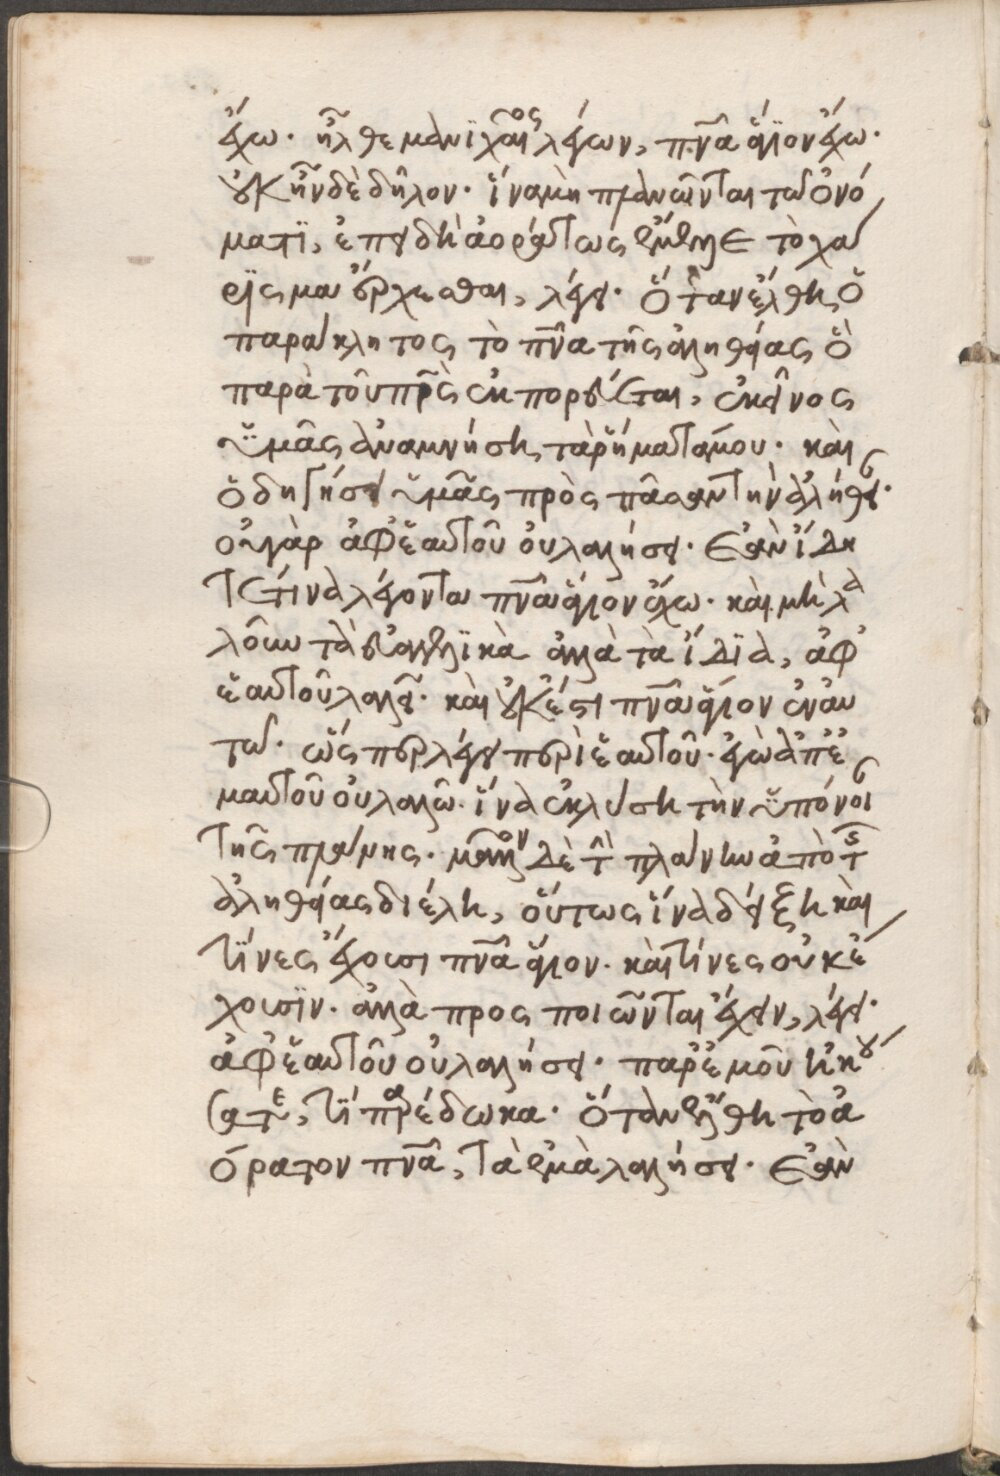 ἔχω. ἦλθε μανϊχαῖος λέγων, πνᾶ ἅγϊον ἔχω.
οὐκ ἦν δὲ δῆλον. ἵνα μὴ πλανῶνται τῶ ὀνό
ματϊ, ἐπειδὴ ἀοράτως ἔμελλε τὸ χά
ρϊσμα ἔρχεσθαι, λέγει. ὅταν ἔλθη ὁ
παράκλητος τὸ πνᾶ τῆς ἀληθείας ὃ
παρὰ τοῦ πρς ἐκπορεύεται, ἐκεῖνος
ὑμᾶς ἀναμνήση τὰ ῥήματά μου. καὶ
ὁδηγήσει ὑμᾶς πρὸς πᾶσαν τὴν ἀλήθει.
οὐ γὰρ ἀφ ἑαυτοῦ οὐ λαλήσει. Ἐὰν ἴδη
τέ τινα λέγοντα πνᾶ ἅγιον ἔχω. καὶ μὴ λα
λοῦν τὰ εὐαγγελϊκὰ ἀλλὰ τὰ ἴδϊα, ἀφ
ἑαυτοῦ λαλεῖ. καὶ οὐκ ἔστι πνᾶ ἅγιον ἐν αυ
τῶ. ὥσπερ λέγει περὶ ἑαυτοῦ. ἐγὼ ἀπ ἐ
μαυτοῦ οὐ λαλῶ. ἵνα ἐκλύση τὴν ὑπόνοι
τῆς πλάνης. μᾶλλον δὲ τ πλάνην ἀπὸ τς
ἀληθείας διέλη, οὕτως ἵνα δείξη καὶ
τίνες ἔχουσι πνᾶ ἅγιον. καὶ τίνες οὐκ ἔ
χουσϊν. ἀλλὰ προσποιοῦνται ἔχειν, λέγει.
ἀφ ἑαυτοῦ οὐ λαλήσει. παρ ἐμοῦ ἠκού
σατε, τί παρέδωκα. ὅταν ἔλθη τὸ ἀ
όρατον πνᾶ, τὰ ἐμὰ λαλήσει. Ἐὰν